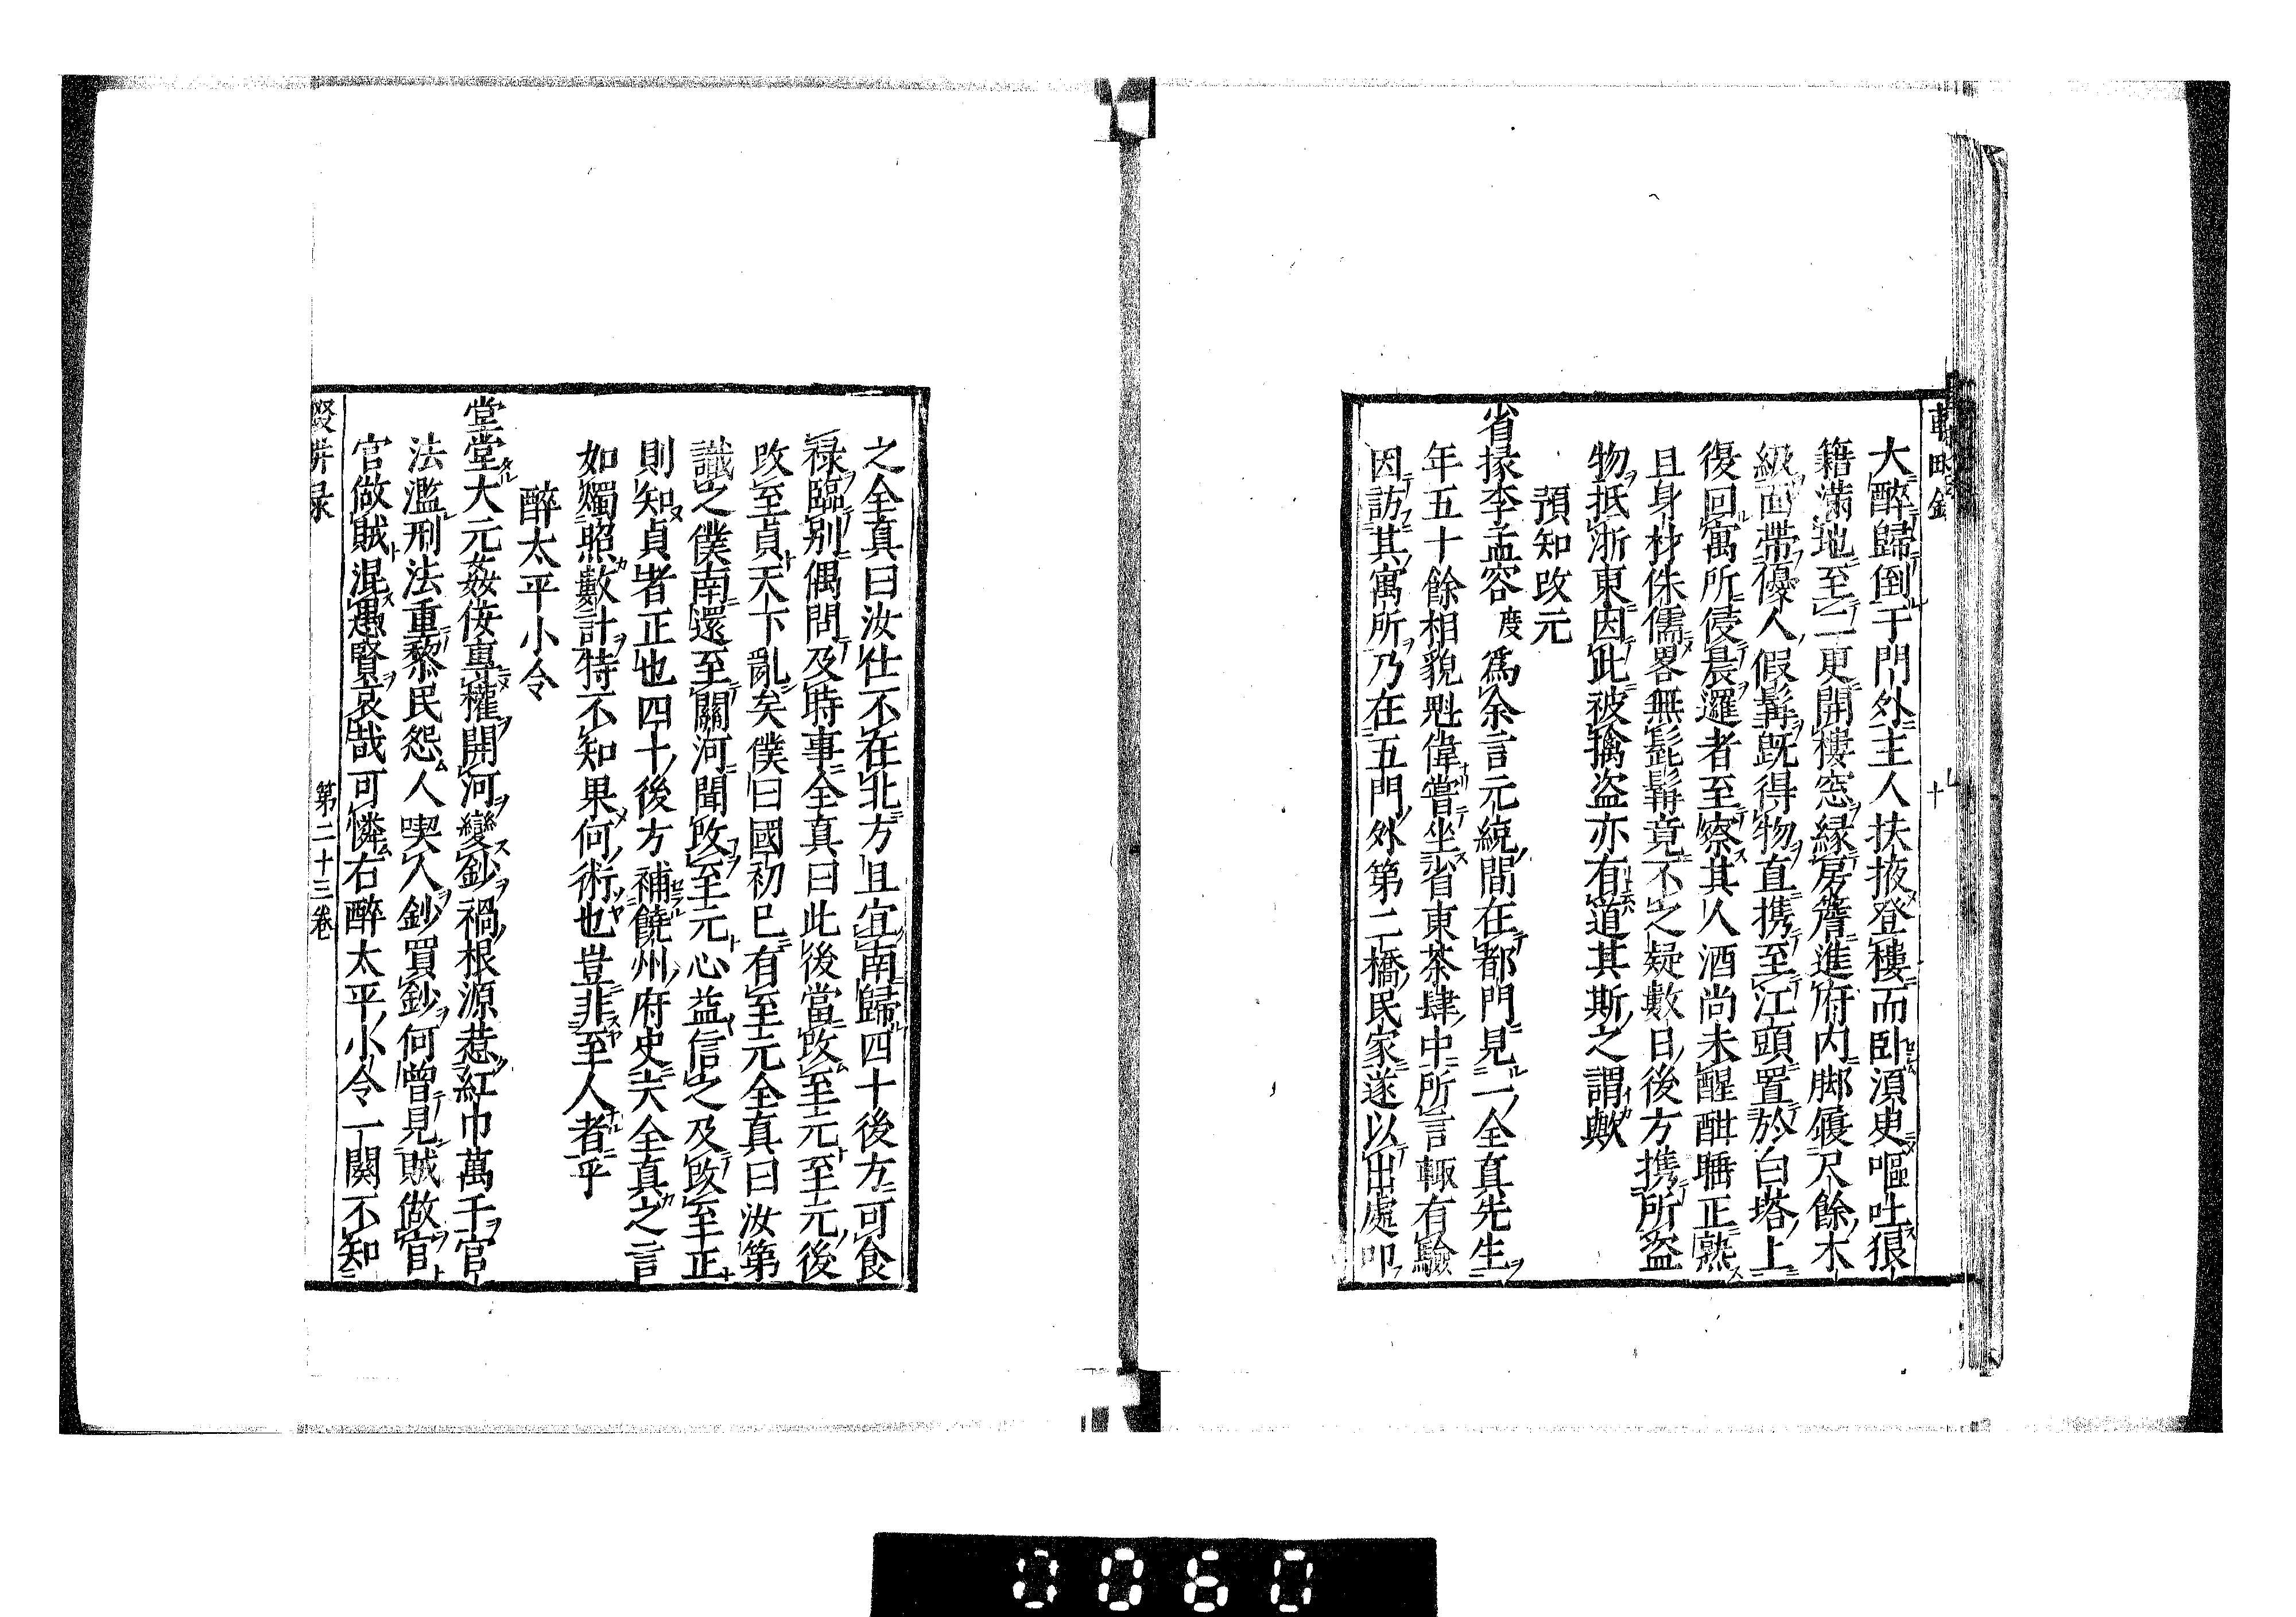 大醉歸倒于門外主人扶掖登樓而臥須臾嘔吐狼
籍滿地至二更開樓窓緣房簷進府内脚履尺餘木
級面帶優人假髯既得物直携至江頭置於白塔上
復回寓所侵晨邏者至察其人酒尚未醒酣睡正熟
且身材侏儒畧無髭髯竟不之疑數日後方携所盜
物抵浙東因此被擒盜亦有道其斯之謂歟
預知改元
省掾李孟容度爲余言元統間在都門見一全真先生
年五十餘相貌魁偉嘗坐省東茶肆中所言輒有驗
因訪其寓所乃在五門外第二橋民家遂以出處叩
之全真曰汝仕不在北方且宜南歸四十後方可食
禄臨别偶問及時事全真曰此後當改至元至元後
改至貞天下亂矣僕曰國初已有至元全真曰汝第
識之僕南還至關河聞改至元心益信之及改至正
則知貞者正也四十後方補饒州府史夫全真之言
如燭照數計特不知果何術也豈非至人者乎
醉太平小令
堂堂大元姦佞專權開河變鈔禍根源惹紅巾萬千官
法濫刑法重黎民怨人喫人鈔買鈔何曾見賊做官
官做賊混愚賢哀哉可憐右醉太平小令一闋不知
第二十三卷
0060